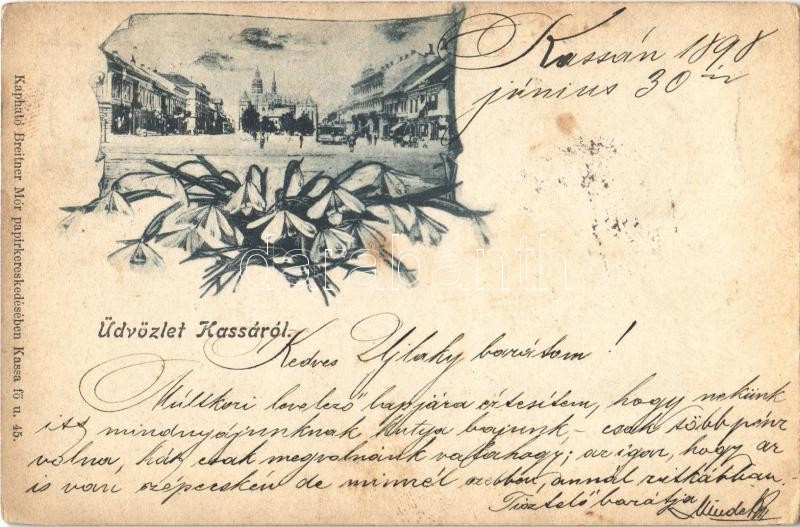 Kassán 1898
június 30 án
Üdvözlet Kassáról.
Kedves Ujlaky barátom!
Múltkori levelező lapjára értesítem, hogy nekünk
itt mindnyájunknak kutya bajunk, – csak több pénz
volna, hát csak megvolnánk valahogy; az igaz, hogy az
is van szépecskén de minnél szebben, annál ritkábban.
Tisztelő barátja
Kapható Breitner Mór papirkereskedésében Kassa fő u. 45.
darabanth